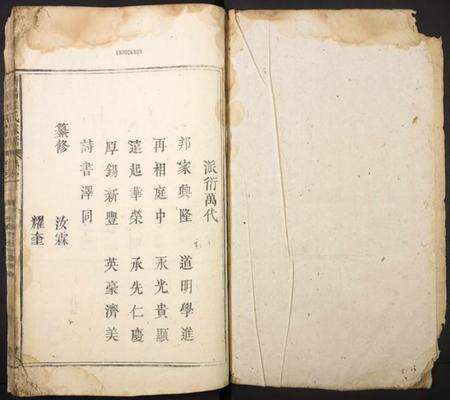 派衍萬代
邦家興隆 道明學進
再相庭中 永光貴顯
遠起華榮 承先仁慶
厚錫新豐 英豪濟美
詩書澤同
纂修 汝霖
耀奎